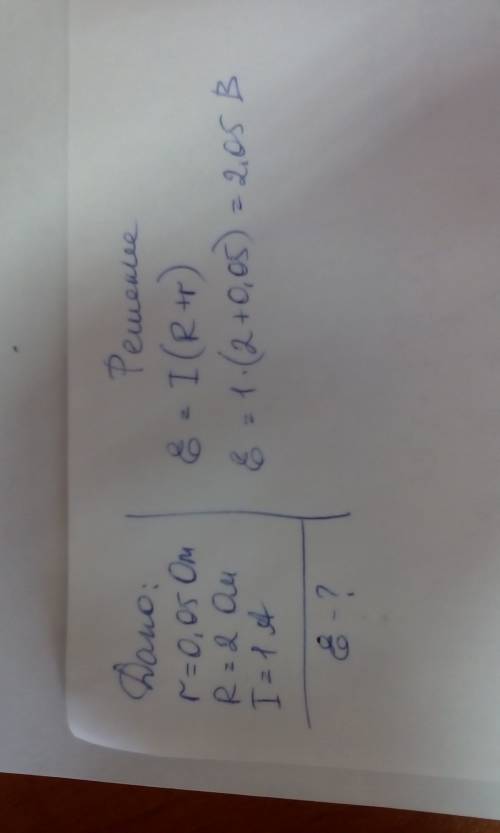 Дано:
r = 0,05 Ом
R = 2 Ом
I = 1 А
ℰ - ?
Решение
ℰ = I (R + r)
ℰ = 1 · (2 + 0,05) = 2,05 В